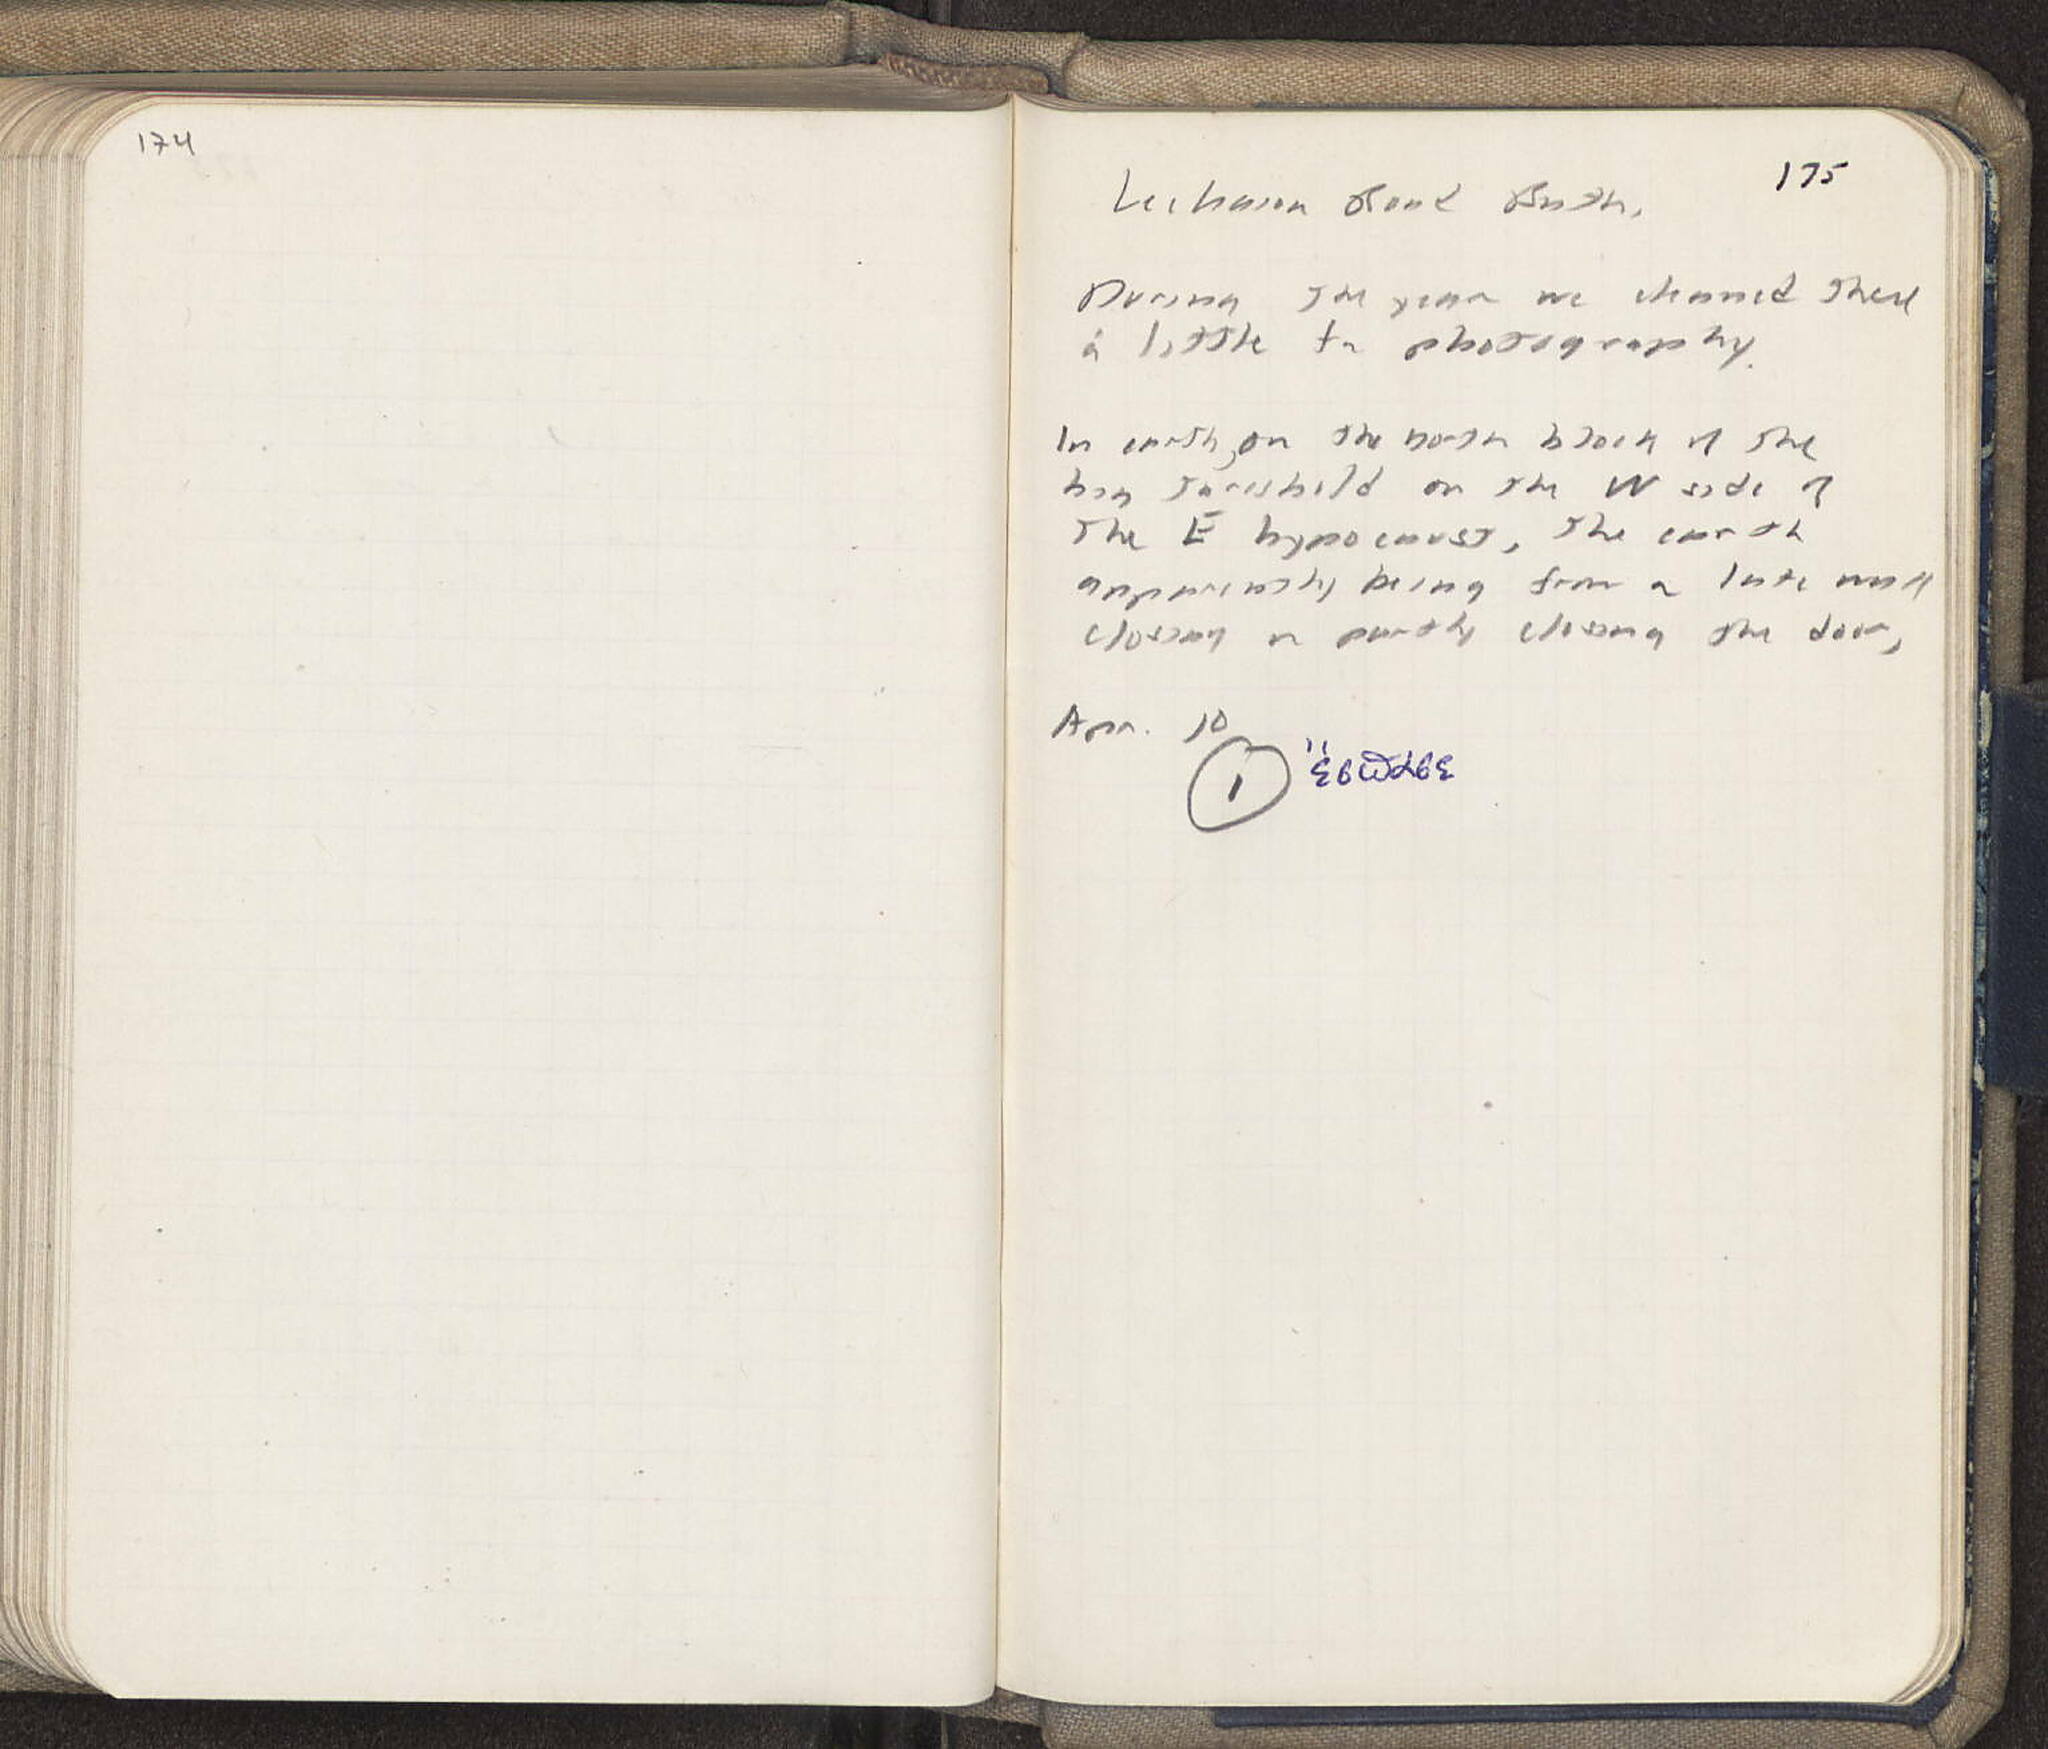 174
175
Lechaion Road Bath.
During the year we cleaned there
a little for photography.
In earth, on the north block of the
big threshold on the W side of
the E hypocaust, the earth
apparently being from a late wall
closing or partly closing the door,
Apr. 10
1